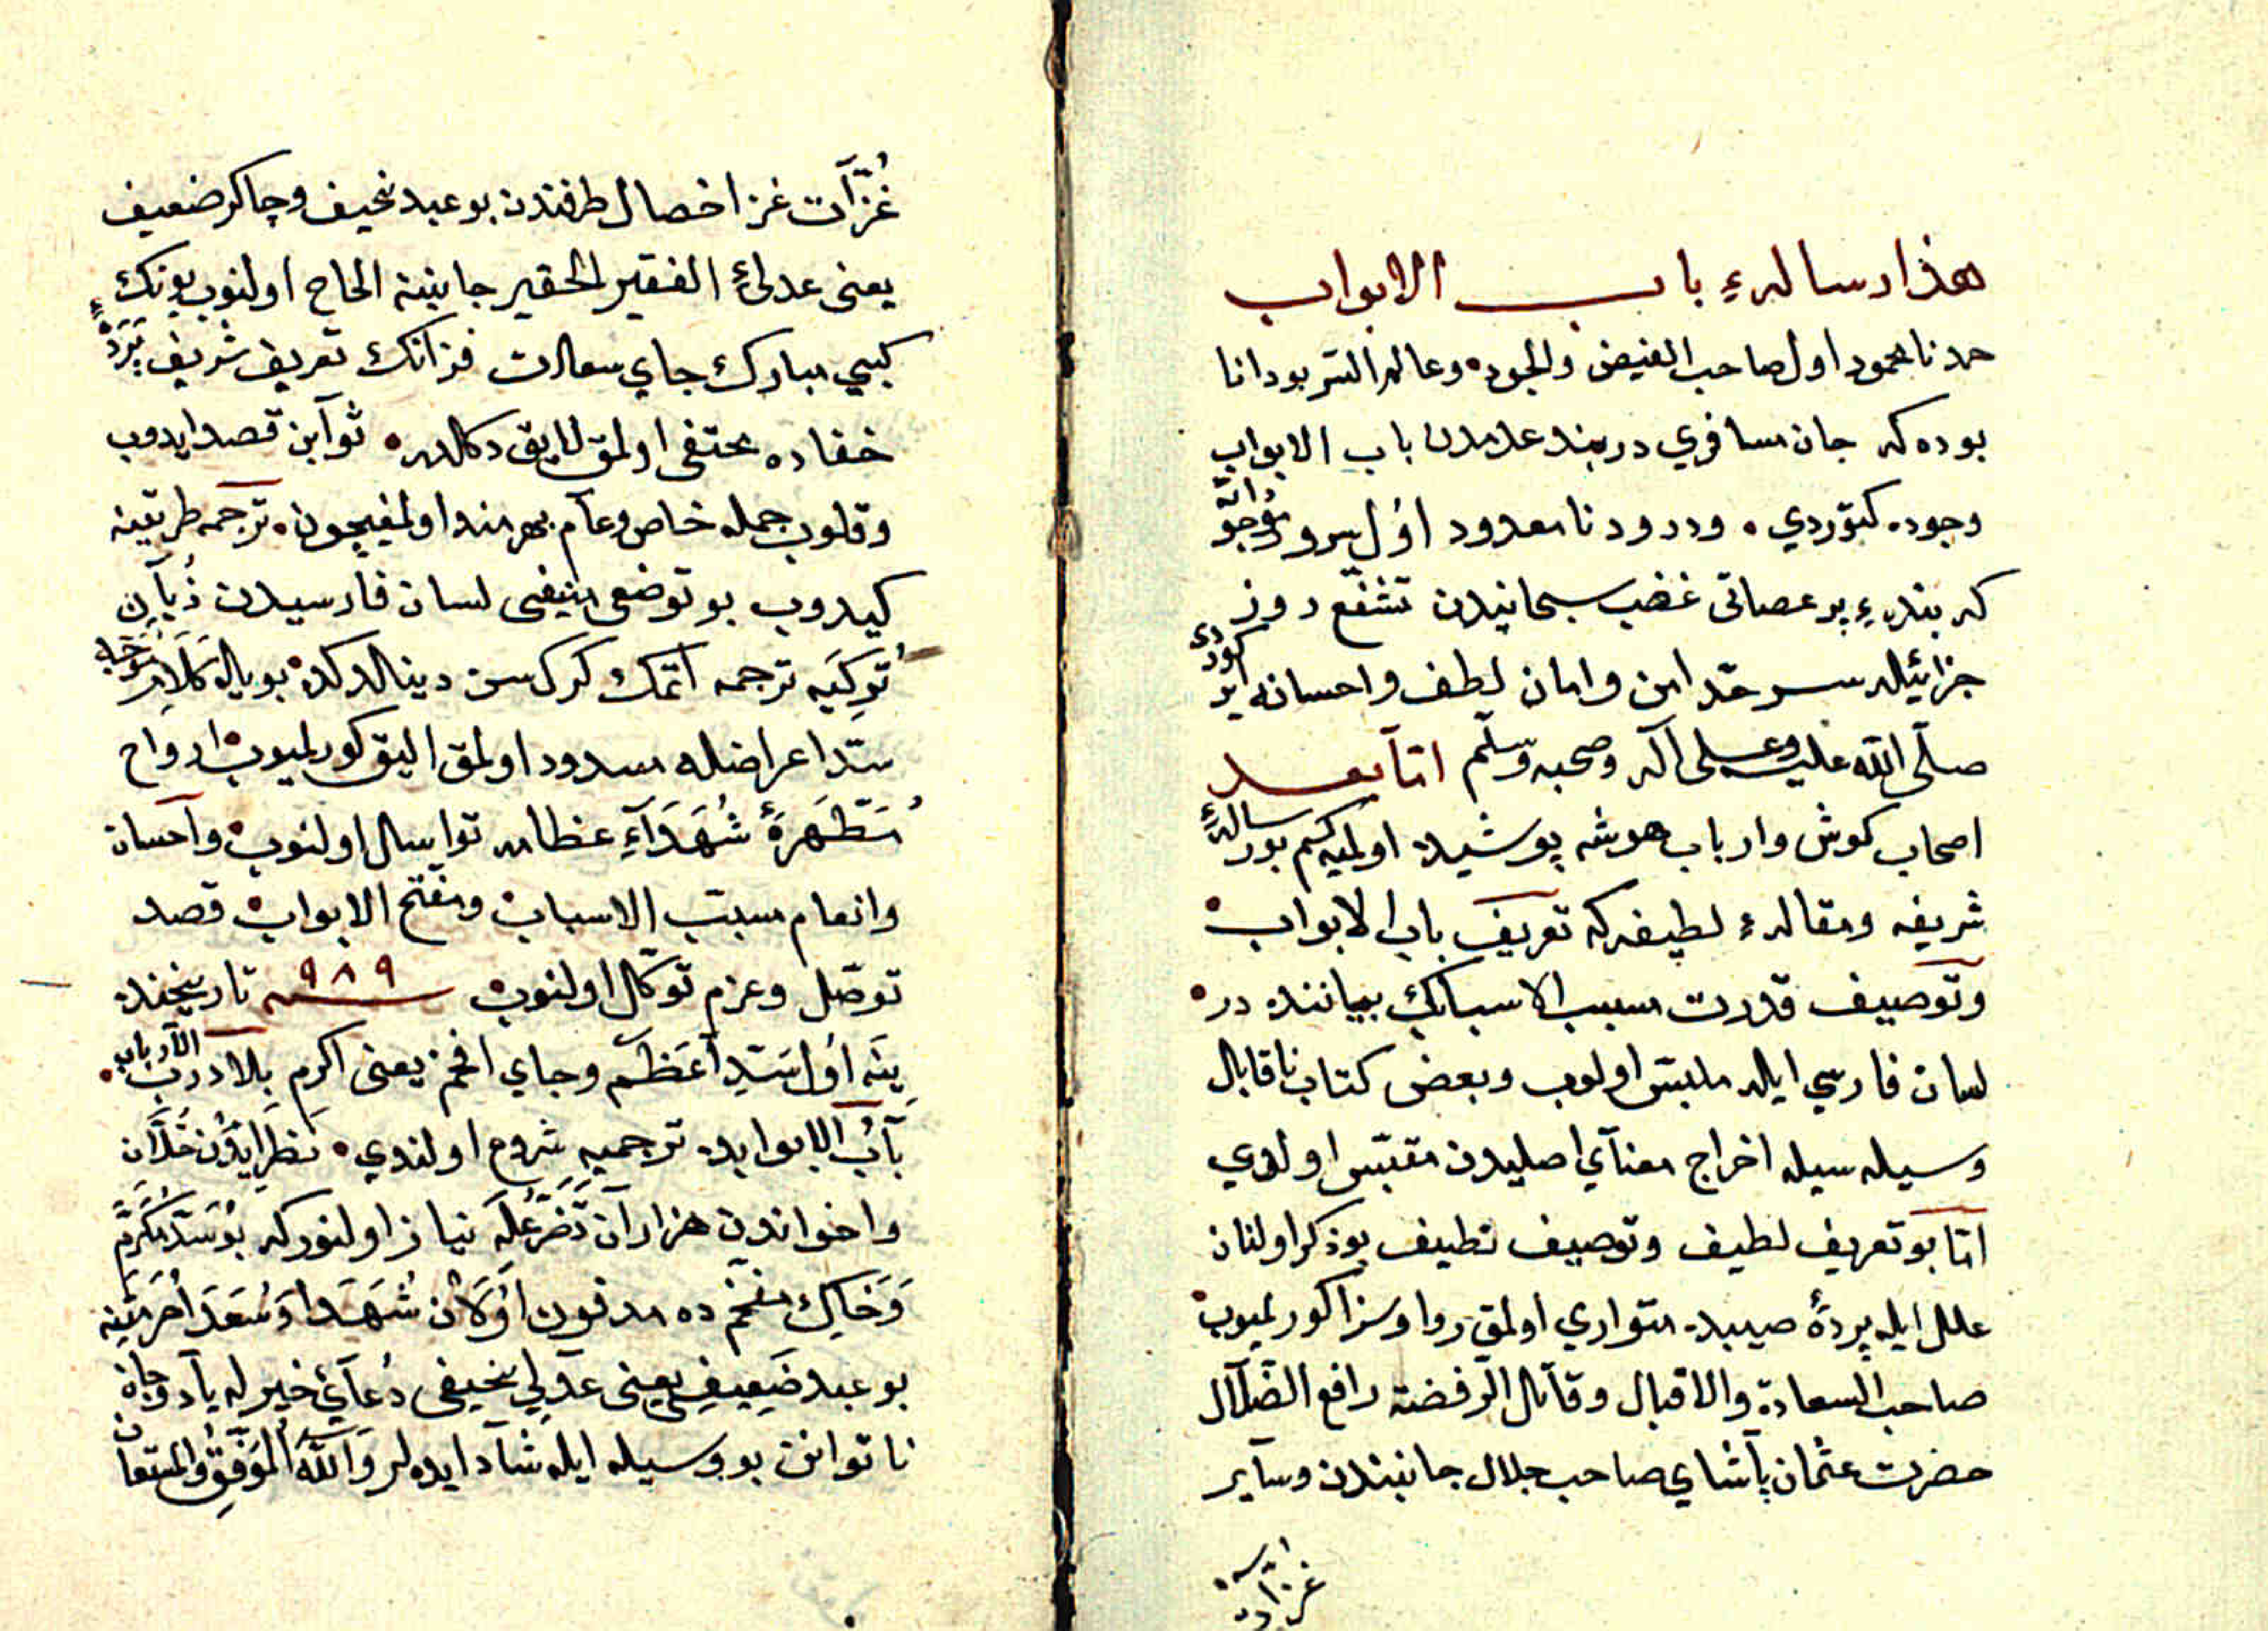 هذا رساله‌ء باب الابواب
حمد نامحمود اول صاحب الفیض والجوده وعالم السر بودانا
بوده که جان مسافری دربند عدمدن باب الابواب
وجوده کتوردی ٠ ودرود نامعدود اول سرور
که بنده‌ء پر عصاتی غضب سبحانیدن تشفع روز
جزائیله سرحد امن وامان لطف واحسانه
صلّی الله علیه وعلی آله وصحبه وسلّم امّا بعد
اصحاب کوش وارباب هوشه پوشیده اولمیه کیم بو رسالهٔ
شریفه ومقاله‌ء لطیفه که تعریف باب الابواب
وتوصیف قدرت مسبب الاسبابک بیاننده در
لسان فارسی ایله ملبّس اولوب وبعض کتاب ناقابل
وسیله سیله اخراج معنآی اصلیدن مقتبس اولدی
امّا بو تعریف لطیف وتوصیف نظیف بوذکر اولنان
علل ایله پردهٔ متواری اولمق روا وسزا کورلمیوب
صاحب السعادة والاقبال وقآتل الرفضة رافع الضّلآل
حضرت عثمان پآشای صاحب جلال جانبندن وسآیر
غزّات
غزّآت غزا خصال طرفندن بو عبد نحیف وچاکر ضعیف
یعنی عدلیٔ الفقیر الحقیر جانبینه الحاح اولنوب بونک
کبی مبارک جای سعادت فزانک تعریف شریف پردهٔ
خفاده مختفی اولمق لایق دکلدر ٠ ثوآبن قصد ایدوب
وقلوب جمله خاص وعآم بهرمند اولمغیچون ٠ ترجمه طریقینه
کیدوب بو توضع منیفی لسان فارسیدن زُبآنِ
تُرکِیَه ترجمه اتمک کرکسن دینلدکده بویله
سدّ اعراضله مسدود اولمق الیق کورلمیوب ارواح
مُطَهَّرَهٔ شُهَدَآءِ عظامه توا سال اولنوب وآحسان
وانعام مسبّب الاسباب ومفتّح الابواب قصد
توصّل وعزم توکّل اولنوب سنه ٩٨٩ تاریخنده
ینه اول سدّ آعظم وجای افخم یعنی اکرم بلاد درب
بآبُ الابوابده ترجمیه شروع اولندی ٠ نَظَر ایدَن خلّان
واخواندن هزاران تَضَرُّعله نیاز اولنور که بو سدّ مُکَرّم
وَخاکِ مفخّم ده مدفون اولان شُهَدا وَسُعَدَا حُرمتینه
بو عبد ضَعِیفی یعنی عدلی نحیفی دُعآیٔ خیر له یآد وجانِ
ناتوانن بو وسیله ایله شآد ایده لر وَاللّٰهُ المُوَفِّقُ وَالمُستعان